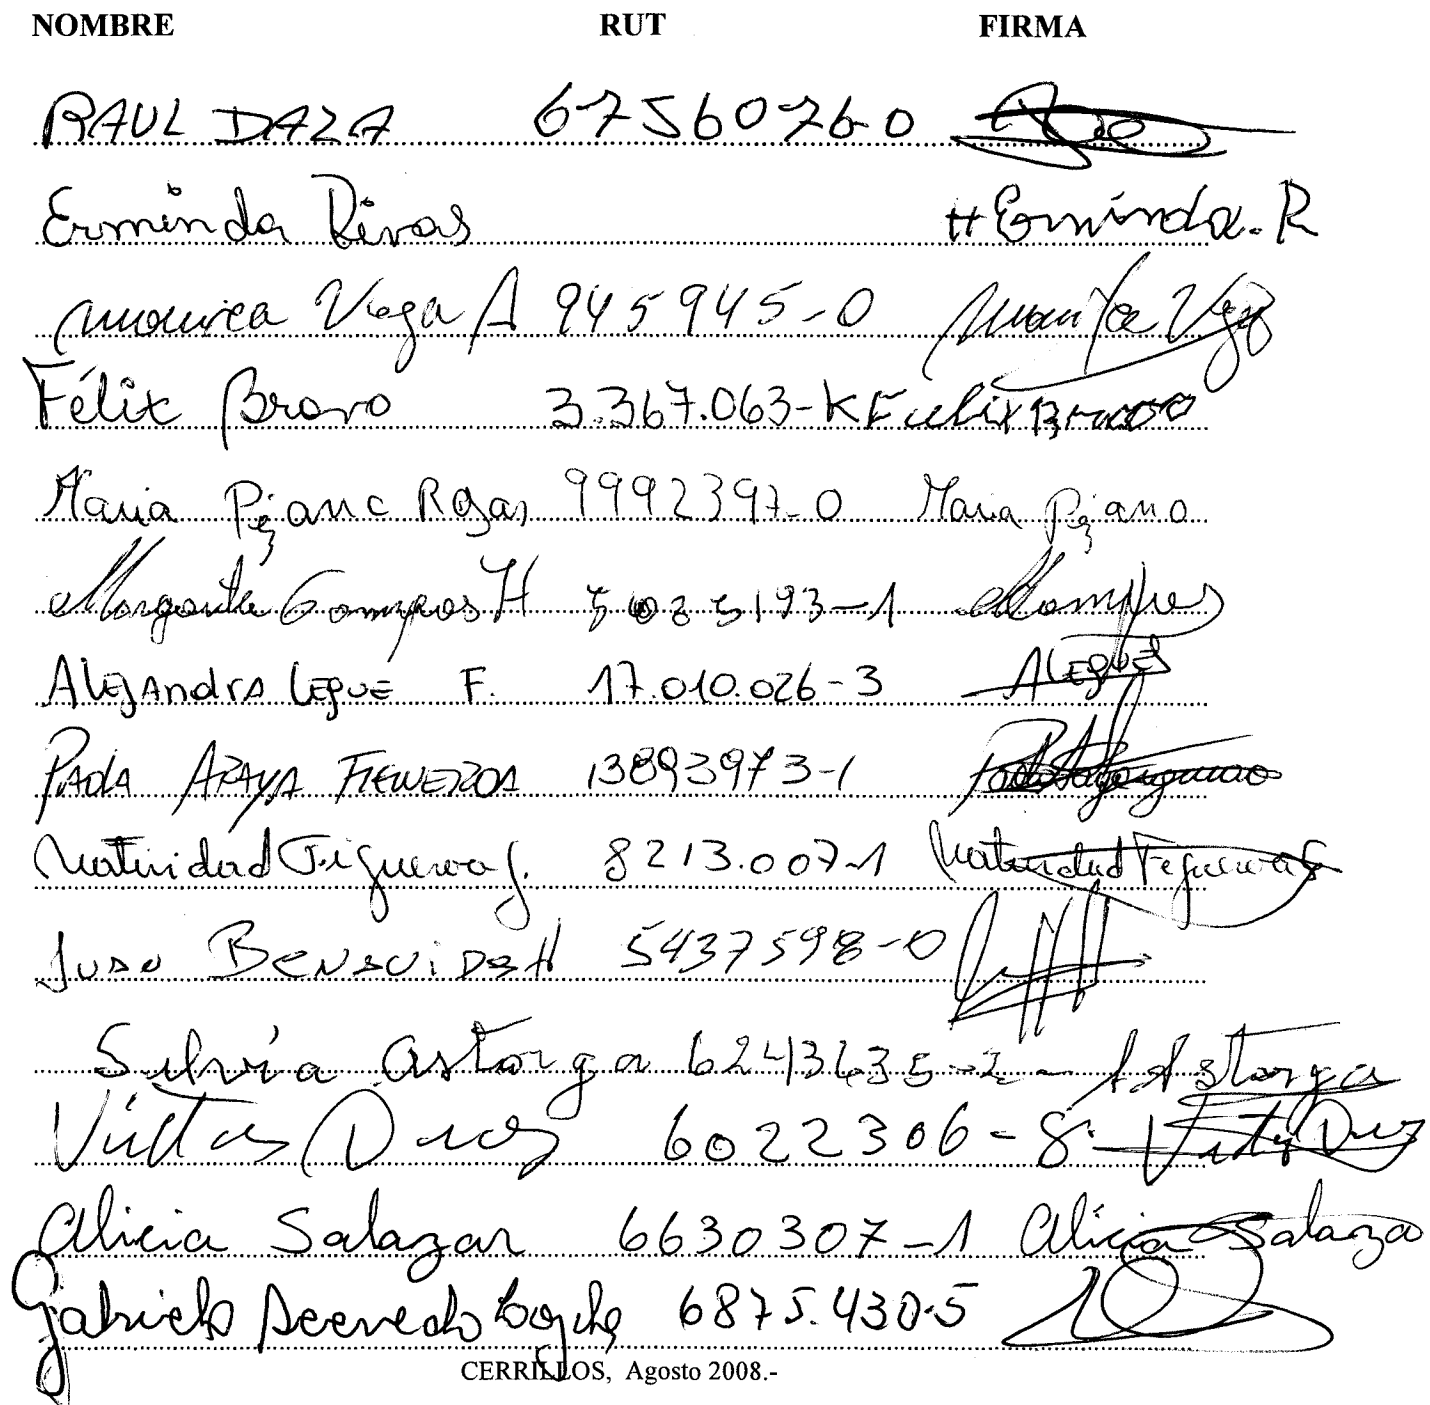 NOMBRE RUT FIRMA
RAUL DAZA 6756076-0
Erminda Rivas H Erminda. R
Monica Vega A 945945-0 Monica Vega
Félix Bravo 3.367.063-K Felix Bravo
Maria Rojas 9992397-0 Maria
Margarita Campos H 5025193-1 MCampos
Alejandra Legue F. 17.010.026-3 ALegue
PAOLA ARAYA FIGUEROA 13893973-1
Natividad Figueroa J. 8213.007-1 Natividad Figueroa
JUAN BENAVIDES H 5437598-0
Silvia Astorga 6243635-2- S Astorga
6022306-8-
Alicia Salazar 6630307-1 Alicia Salaza
Gabriela Acevedo 6875.430-5
CERRILLOS, Agosto 2008.-